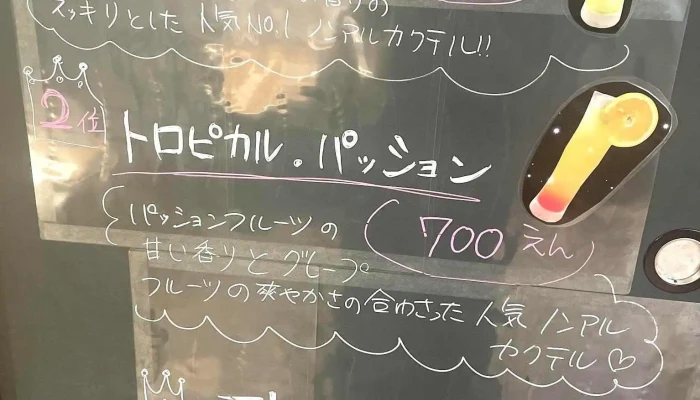 スッキリとした 人気NO.1 ノンアルカクテル!!
2位
トロピカル・パッション
パッションフルーツの
700えん
甘い香りとグレープ
フルーツの爽やかさの合わさった 人気 ノンアル
カクテル♡